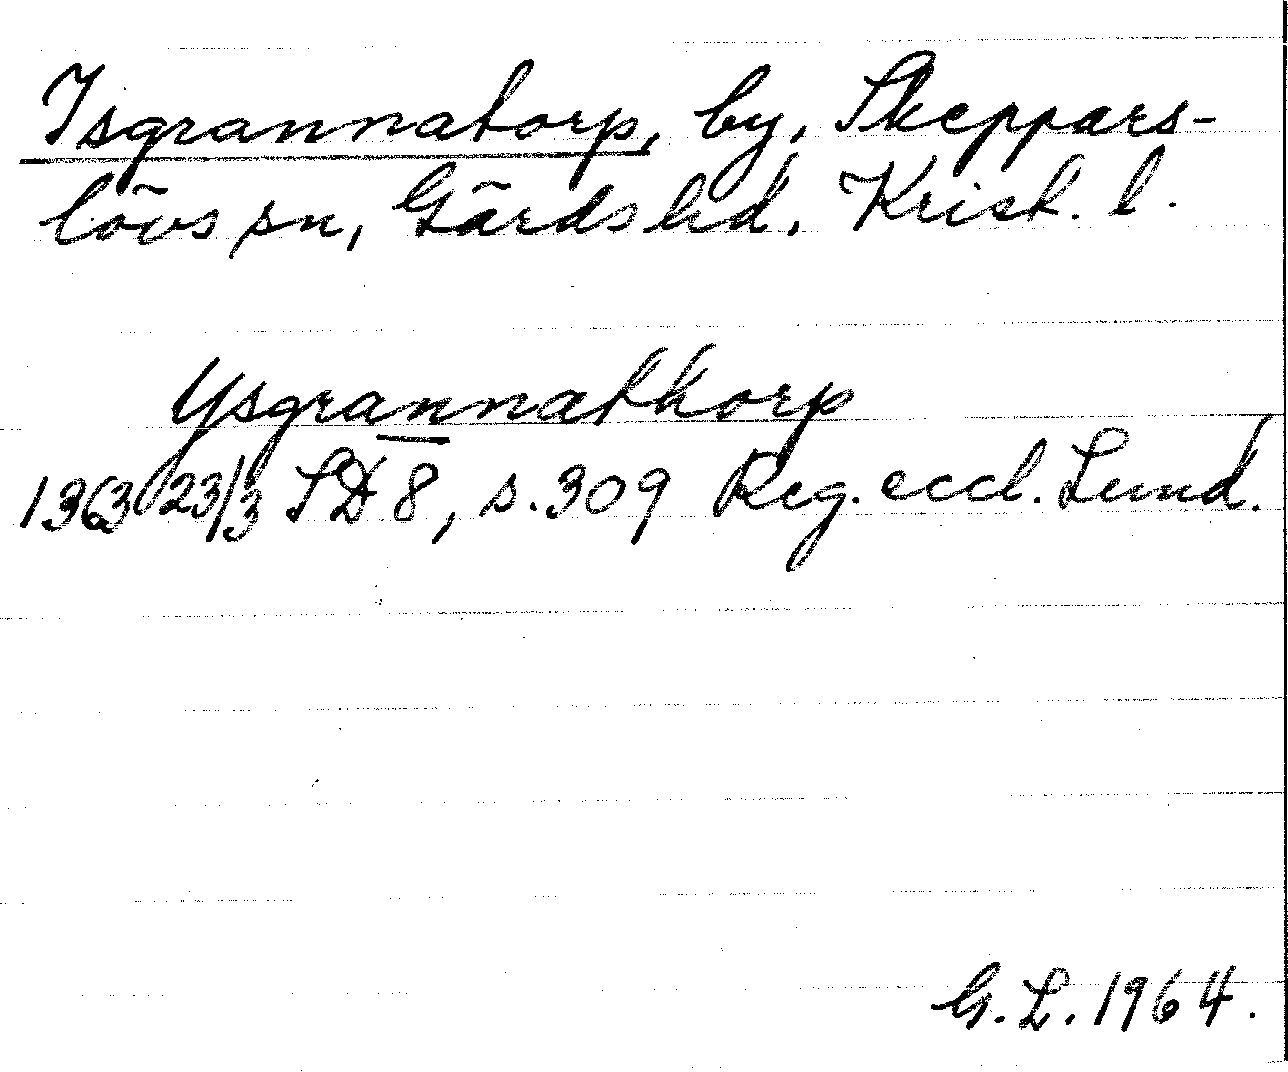 Isgrannatorp, by, Skeppars-
lövs sn, Gärds hd. Krist. l.
Ysgrannathorp
1363 23/3 SD 8, s. 309 Reg. eccl. Lund.
G. L. 1964.